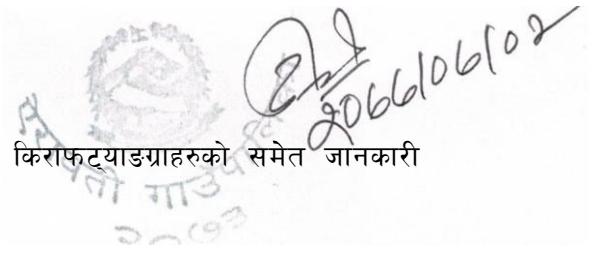 २०७७/०७/०२
किराफट्याङग्राहरुको समेत जानकारी
ऐरावती गाउँपालि
२०७३